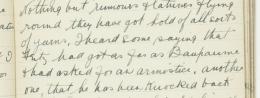 nothing but rumours & latrines flying
round, they have got hold of all sorts
of yarns, I heard some saying that
Fritz had got as far as Bapaume
& had asked for an armistice, another
one, that he has been knocked back